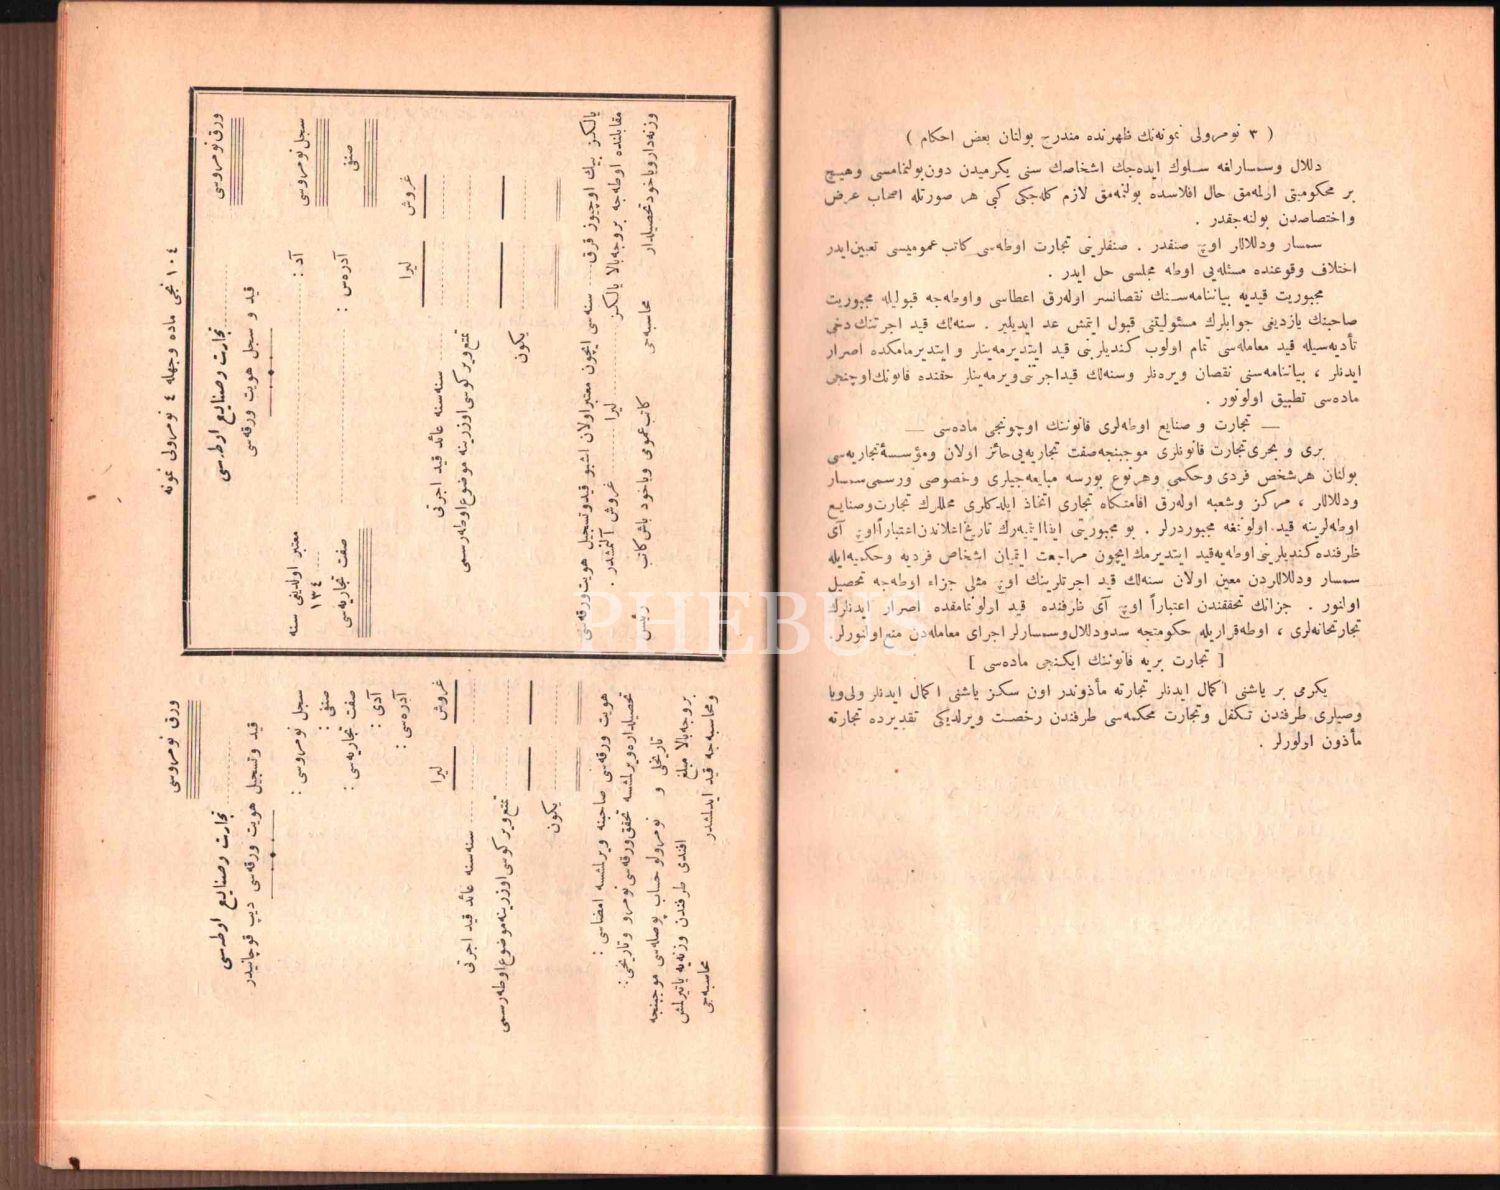 ( ٣ نومرولی نمونه‌نك ظهرنده مندرج بولنان بعض احكام )
دلال وسمسارلغه سلوك ایده‌جك اشخاصك سنی یكرمیدن دون بولنمامسی وهیچ
بر محكومیتی اولمه‌مق حال افلاسده بولنمه‌مق لازم كله‌جكی كبی هر صورتله اصحاب عرض
واختصاصدن بولنه‌جقدر .
سمسار ودلاللر اوچ صنفدر . صنفلرینی تجارت اوطه‌سی كاتب عمومیسی تعیین ایدر
اختلاف وقوعنده مسئله‌یی اوطه مجلسی حل ایدر .
مجبوریت قیدیه بیاننامه‌سنك نقصانسز اوله‌رق اعطاسی واوطه‌جه قبولیله مجبوریت
صاحبنك یازدیغی جوابلرك مسئولیتنی قبول ایتمش عد ایدیلیر . سنه‌لك قید اجرتنك دخی
تأدیه‌سیله قید معامله‌سی تمام اولوب كندیلرینی قید ایتدیرمه‌ینلر و ایتدیرمامكده اصرار
ایدنلر ، بیاننامه‌سنی نقصان ویره‌نلر وسنه‌لك قید اجرتنی ویرمه‌ینلر حقنده قانونك اوچنجی
ماده‌سی تطبیق اولونور .
— تجارت و صنایع اوطه‌لری قانوننك اوچونجی ماده‌سی —
بری و بحری تجارت قانونلری موجبنجه صفت تجاریه‌یی حائز اولان ومؤسسۀ تجاریه‌سی
بولنان هر شخص فردی وحكمی وهر نوع بورسه مبایعه‌جیلری وخصوصی ورسمی سمسار
ودلاللار ، مركز وشعبه اوله‌رق اقامتكاه تجاری اتخاذ ایلدكلری محللرك تجارت وصنایع
اوطه‌لرینه قید اولونمغه مجبوردرلر . بو مجبوریتی ایفا ایتمیه‌رك تاریخ اعلاندن اعتباراً اوچ آی
ظرفنده كندیلرینی اوطه‌یه قید ایتدیرمك ایچون مراجعت ایتمیان اشخاص فردیه وحكمیه ایله
سمسار ودلاللاردن معین اولان سنه‌لك قید اجرتلرینك اوچ مثلی جزاء اوطه‌جه تحصیل
اولنور . جزانك تحققندن اعتباراً اوچ آی ظرفنده قید اولونمامقده اصرار ایدنلرك
تجارتخانه‌لری ، اوطه قراریله حكومتجه سد ودلال وسمسارلر اجرای معامله‌دن منع اولنورلر.
[ تجارت بریه قانوننك ایكنجی ماده‌سی ]
یكرمی بر یاشنی اكمال ایدنلر تجارته مأذوندر اون سكز یاشنی اكمال ایدنلر ولی ویا
وصیلری طرفندن تكفل وتجارت محكمه‌سی طرفندن رخصت ویرلدیكی تقدیرده تجارته
مأذون اولورلر .
١٠٤ نجی ماده وجهله ٤ نومرولی نمونه
ورق نومروسی
تجارت وصنایع اوطه‌سی
قید و سجل هویت ورقه‌سی
سجل نومروسی
صنفی
آد :
آدره‌س :
معتبر اولدیغی سنه
١٣٤
صفت تجاریه‌سی
غروش
لیرا
سنه‌سنه عائد قید اجرتی
تمتع ویركوسی اوزرینه موضوع اوطه رسمی
یكون
یالكز بیك اوچیوز قرق ... سنه‌سی ایچون معتبر اولان اشبو قید وتسجیل هویت ورقه‌سی
مقابلنده اوطه‌جه بروجه بالا یالكز ... لیرا ... غروش آلنمشدر .
وزنه‌دار ویاخود تحصیلدار
محاسبه‌جی
كاتب عمومی ویاخود باش كاتب
رئیس
ورق نومروسی
تجارت وصنایع اوطه‌سی
قید وتسجیل هویت ورقه‌سی دیپ قوچانیدر
سجل نومروسی :
صنفی :
صفت تجاریه‌سی :
آدی :
آدره‌سی :
غروش
لیرا
سنه‌سنه عائد قید اجرتی
تمتع ویركوسی اوزرینه موضوع اوطه رسمی
یكون
هویت ورقه‌سی صاحبنه ویرلمشسه امضاسی :
تحصیلداره ویرلمشسه تحقق ورقه‌سی نومرو و تاریخی :
تاریخلی و نومرولو حساب پوصله‌سی موجبنجه
بروجه بالا مبلغ افندی طرفندن وزنه‌یه یاتیرلمش
ومحاسبه‌جه قید ایدلمشدر
محاسبه‌جی
PHEBUS